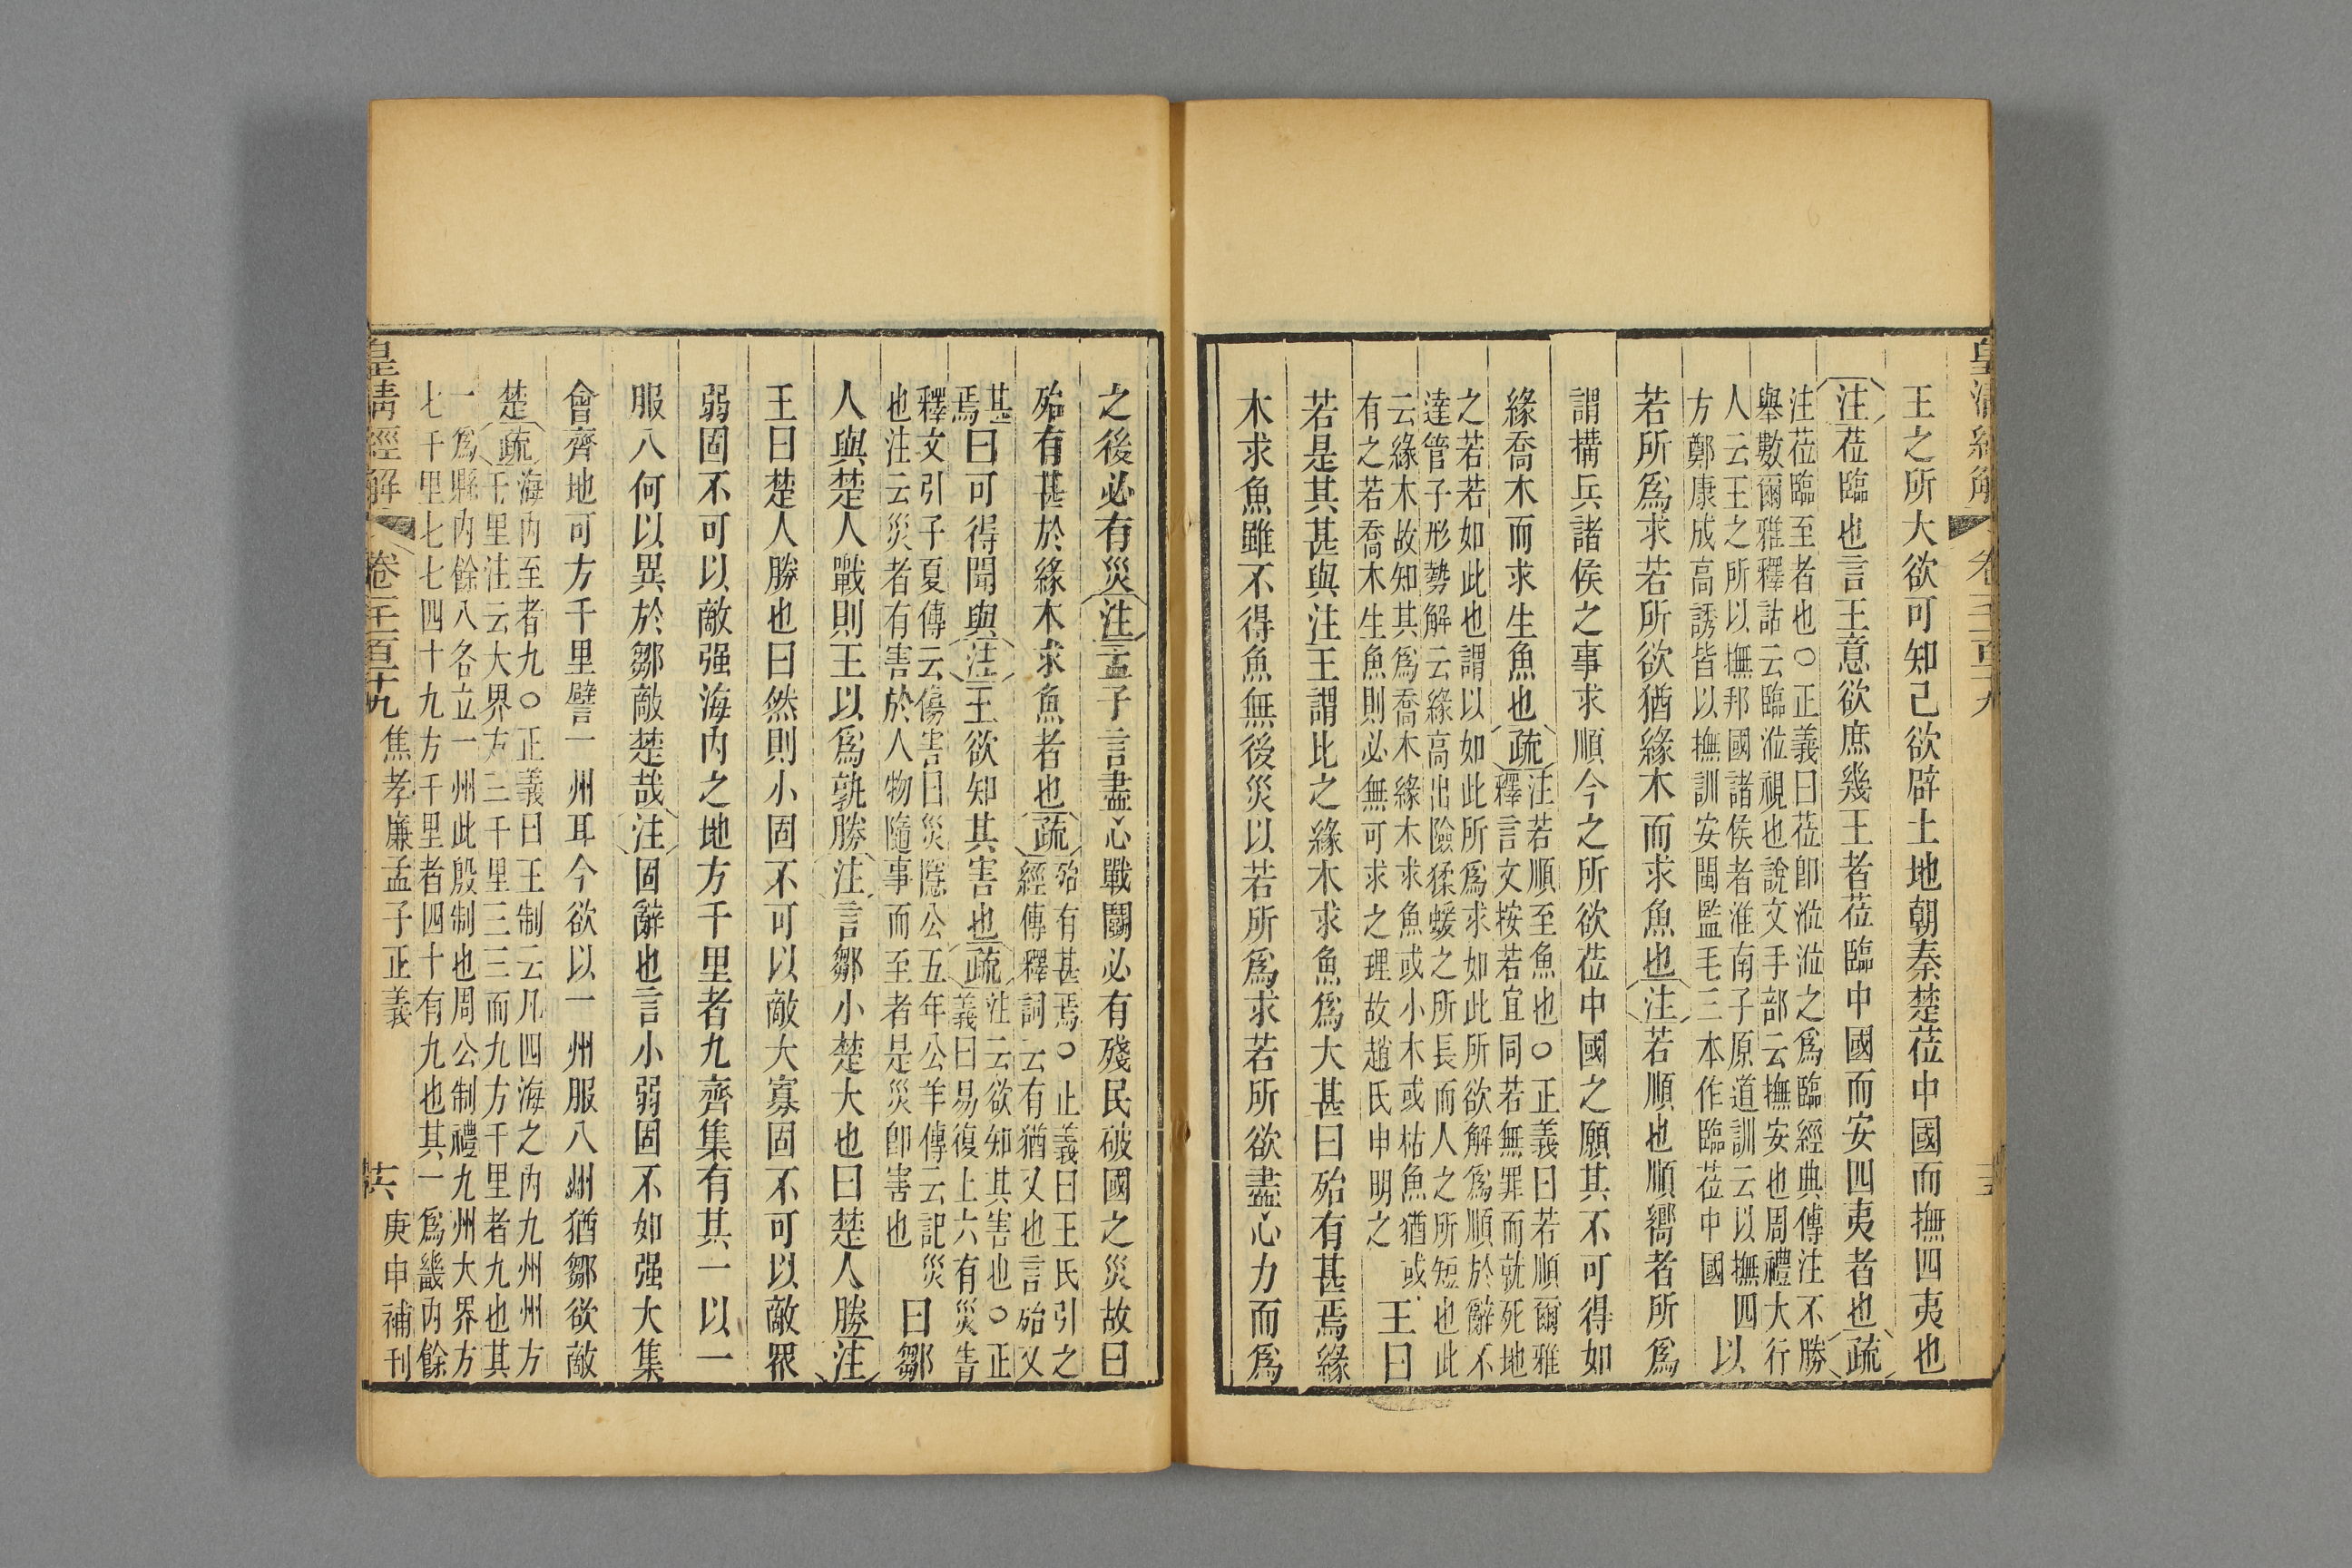 皇清經解
卷三百十九
十五
王之所大欲可知己欲辟土地朝秦楚莅中國而撫四夷也
注莅臨也言王意欲庶幾王者莅臨中國而安四夷者也疏
注莅臨至者也○正義曰莅卽涖涖之爲臨經典傳注不勝
舉數爾雅釋詁云臨涖視也說文手部云撫安也周禮大行
人云王之所以撫邦國諸侯者淮南子原道訓云以撫四
方鄭康成高誘皆以撫訓安閩監毛三本作臨莅中國
以
若所爲求若所欲猶緣木而求魚也注若順也順嚮者所爲
謂搆兵諸侯之事求順今之所欲莅中國之願其不可得如
緣喬木而求生魚也疏
注若順至魚也○正義曰若順爾雅
釋言文按若宜同若無罪而就死地
之若若如此也謂以如此所爲求如此所欲解爲順於辭不
達管子形勢解云緣高出險猱蝯之所長而人之所短也此
云緣木故知其爲喬木緣木求魚或小木或枯魚猶或
有之若喬木生魚則必無可求之理故趙氏申明之
王曰
若是其甚與注王謂比之緣木求魚爲大甚曰殆有甚焉緣
木求魚雖不得魚無後災以若所爲求若所欲盡心力而爲
之後必有災注孟子言盡心戰鬭必有殘民破國之災故曰
殆有甚於緣木求魚者也疏
殆有甚焉○止義曰王氏引之
經傳釋詞云有猶又也言殆又
甚
焉
曰可得聞與注王欲知其害也疏
注云欲知其害也○正
義曰易復上六有災眚
釋文引子夏傳云傷害曰災隱公五年公羊傳云記災
也注云災者有害於人物隨事而至者是災卽害也
曰鄒
人與楚人戰則王以爲孰勝注言鄒小楚大也曰楚人勝注
王曰楚人勝也曰然則小固不可以敵大寡固不可以敵眾
弱固不可以敵强海內之地方千里者九齊集有其一以一
服八何以異於鄒敵楚哉注固辭也言小弱固不如强大集
會齊地可方千里譬一州耳今欲以一州服八州猶鄒欲敵
楚疏
海內至者九○正義曰王制云凡四海之內九州州方
千里注云大界方三千里三三而九方千里者九也其
一爲縣內餘八各立一州此殷制也周公制禮九州大界方
七千里七七四十九方千里者四十有九也其一爲畿內餘
皇清經解
卷三百十九
焦孝廉孟子正義
十六
庚申補刊